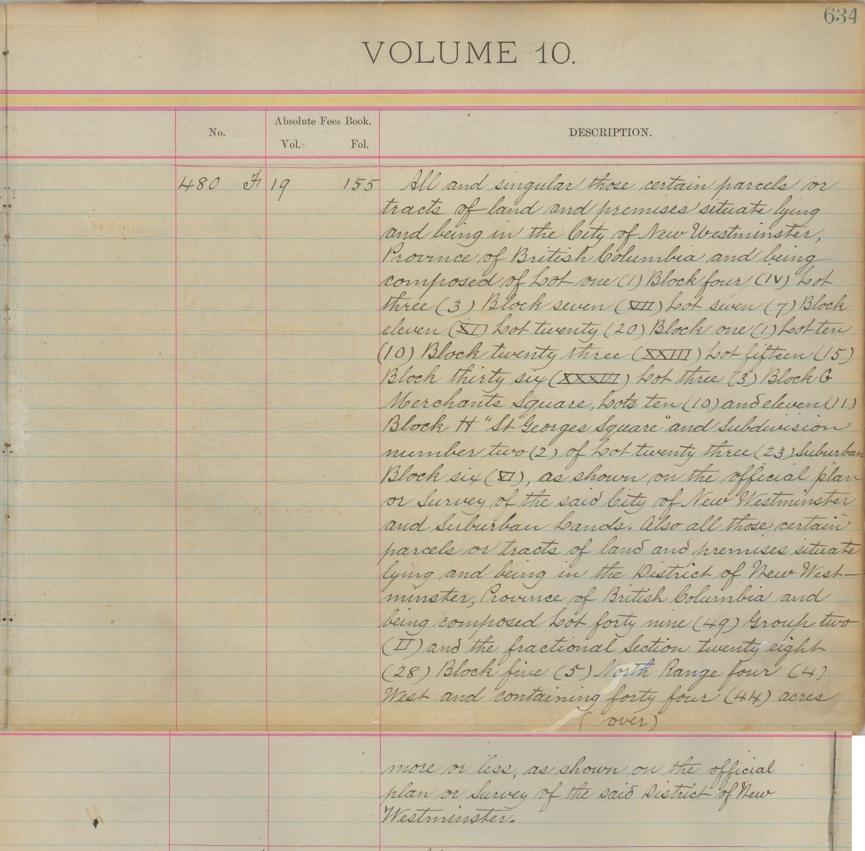 634
VOLUME 10.
No.
Absolute Fees Book.
Vol. Fol.
DESCRIPTION.
480 F 19 155 All and singular those certain parcels or
tracts of land and premises situate lying
and being in the City of New Westminster,
Province of British Columbia and being
composed of Lot one (1) Block four (IV) Lot
three (3) Block seven (VII) Lot seven (7) Block
eleven (XI) Lot twenty (20) Block one (1) Lot ten
(10) Block twenty three (XXIII) Lot fifteen (15)
Block thirty six (XXXVI) Lot three (3) Block G
Merchants Square, Lots ten (10) and eleven (11)
Block H "St Georges Square" and Subdivision
number two (2) of Lot twenty three (23) Suburban
Block six (VI), as shown on the official plan
or Survey of the said City of New Westminster
and Suburban Lands. Also all those certain
parcels or tracts of land and premises situate
lying and being in the District of New West-
minster, Province of British Columbia and
being composed Lot forty nine (49) Group two
(II) and the fractional Section twenty eight
(28) Block five (5) North Range four (4)
West and containing forty four (44) acres
(over)
more or less, as shown on the official
plan or Survey of the said District of New
Westminster.